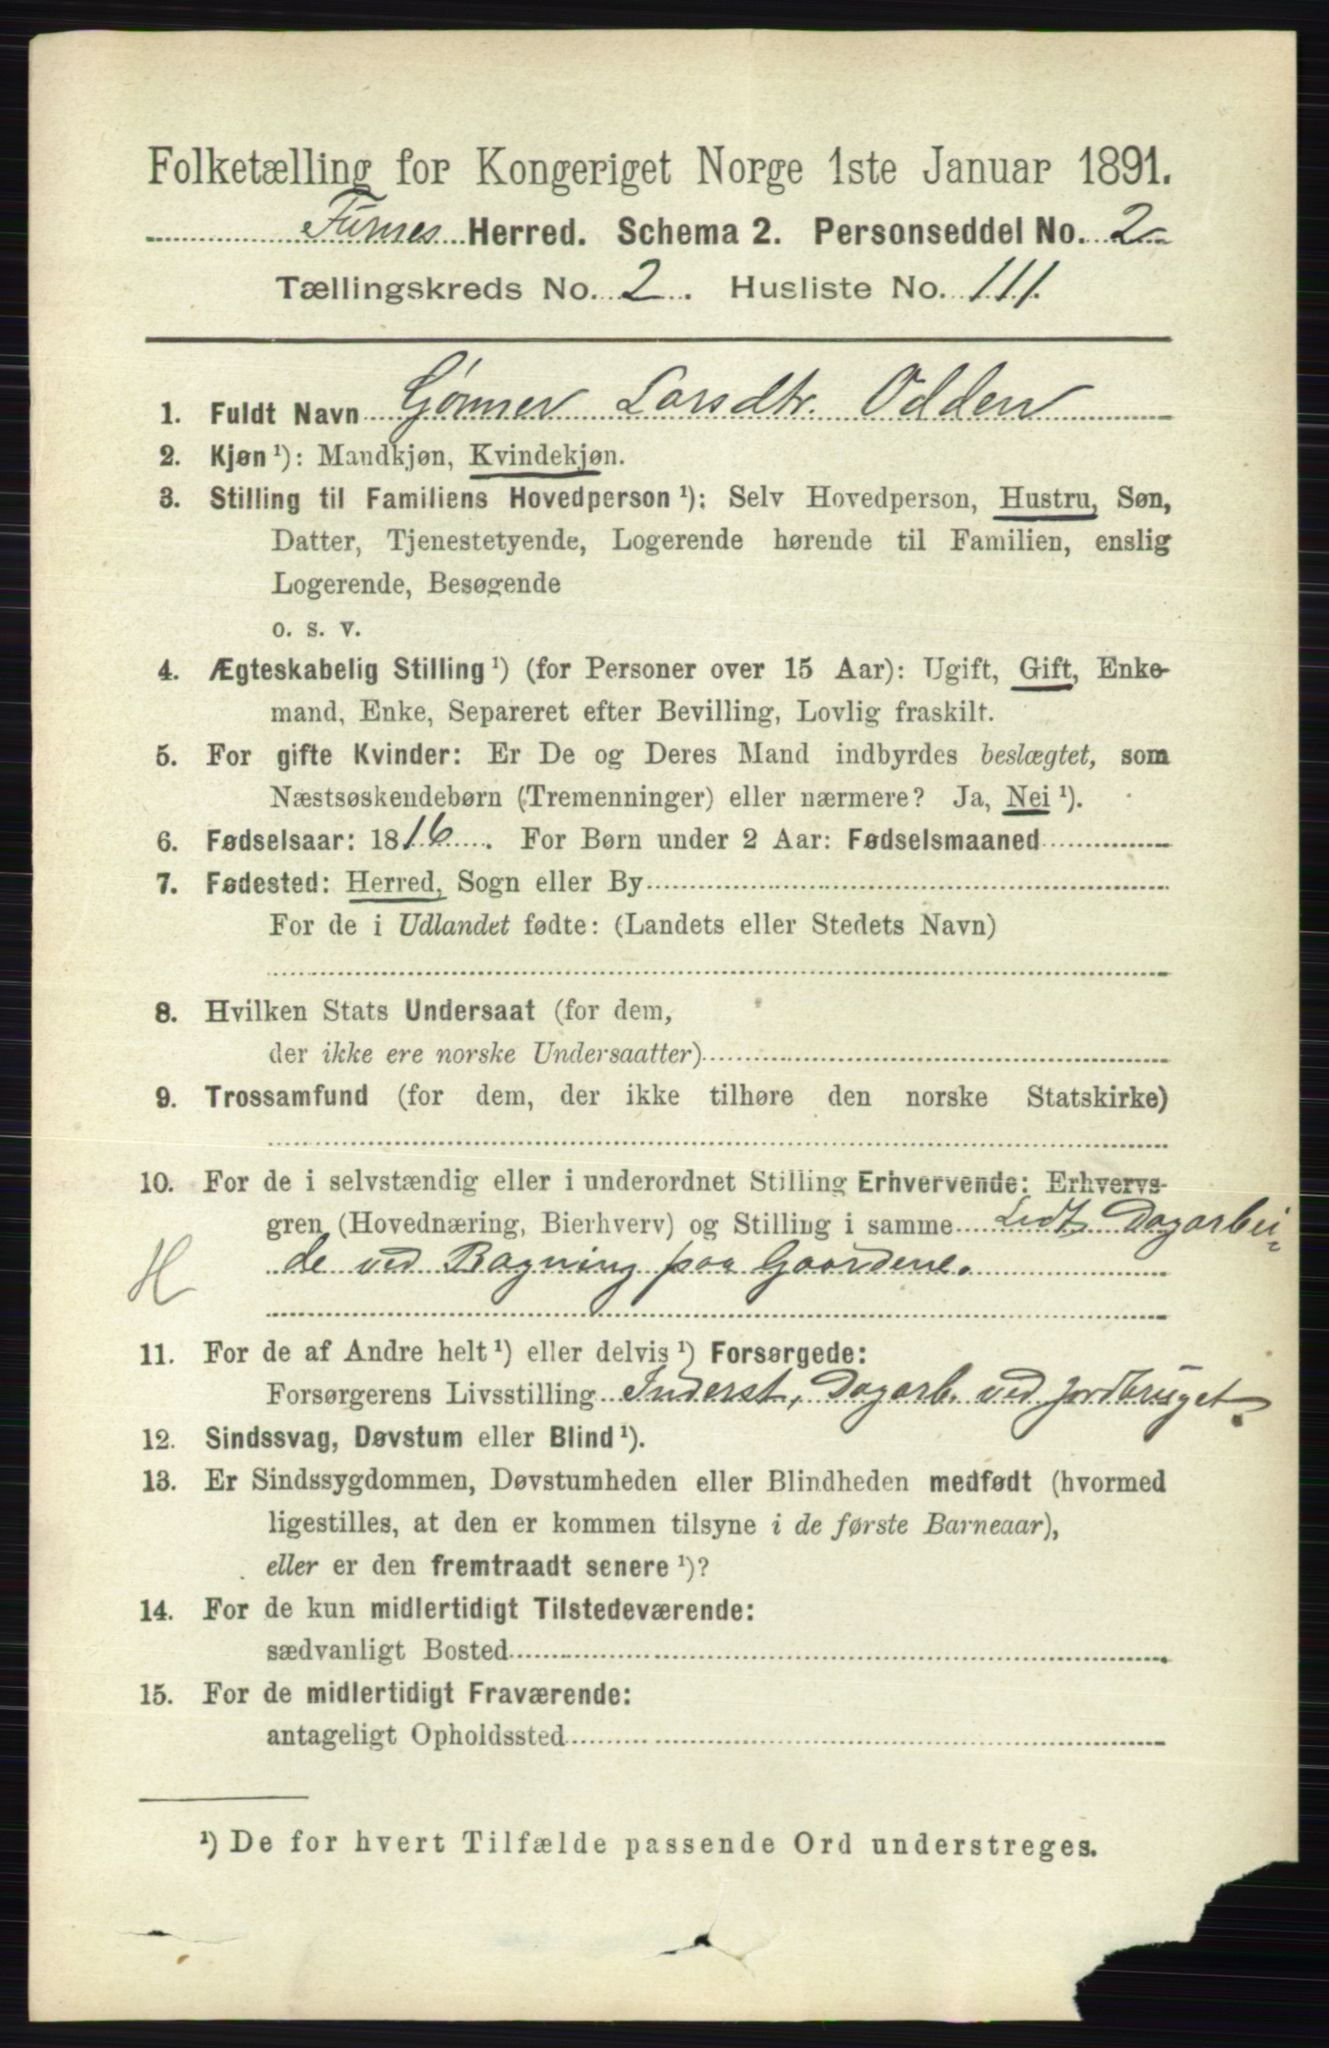 Folketælling for Kongeriget Norge 1ste Januar 1891.
Furnes Herred. Schema 2. Personseddel No. 2
Tællingskreds No. 2. Husliste No. 111.
1. Fuldt Navn Gønner Larsdtr. Odden
2. Kjøn ¹): Mandkjøn, Kvindekjøn.
3. Stilling til Familiens Hovedperson ¹): Selv Hovedperson, Hustru, Søn,
Datter, Tjenestetyende, Logerende hørende til Familien, enslig
Logerende, Besøgende
o. s. v.
4. Ægteskabelig Stilling ¹) (for Personer over 15 Aar): Ugift, Gift, Enke-
mand, Enke, Separeret efter Bevilling, Lovlig fraskilt.
5. For gifte Kvinder: Er De og Deres Mand indbyrdes beslægtet, som
Næstsøskendebørn (Tremenninger) eller nærmere? Ja, Nei ¹).
6. Fødselsaar: 1816. For Børn under 2 Aar: Fødselsmaaned
7. Fødested: Herred, Sogn eller By
For de i Udlandet fødte: (Landets eller Stedets Navn)
8. Hvilken Stats Undersaat (for dem,
der ikke ere norske Undersaatter)
9. Trossamfund (for dem, der ikke tilhøre den norske Statskirke)
10. For de i selvstændig eller i underordnet Stilling Erhvervende: Erhvervs-
gren (Hovednæring, Bierhverv) og Stilling i samme Lidt Dagarbei-
H de ved Bagning paa Gaardene.
11. For de af Andre helt ¹) eller delvis ¹) Forsørgede:
Forsørgerens Livsstilling Inderst, Dagarb. ved jordbruget.
12. Sindssvag, Døvstum eller Blind ¹).
13. Er Sindssygdommen, Døvstumheden eller Blindheden medfødt (hvormed
ligestilles, at den er kommen tilsyne i de første Barneaar),
eller er den fremtraadt senere ¹)?
14. For de kun midlertidigt Tilstedeværende:
sædvanligt Bosted
15. For de midlertidigt Fraværende:
antageligt Opholdssted
¹) De for hvert Tilfælde passende Ord understreges.